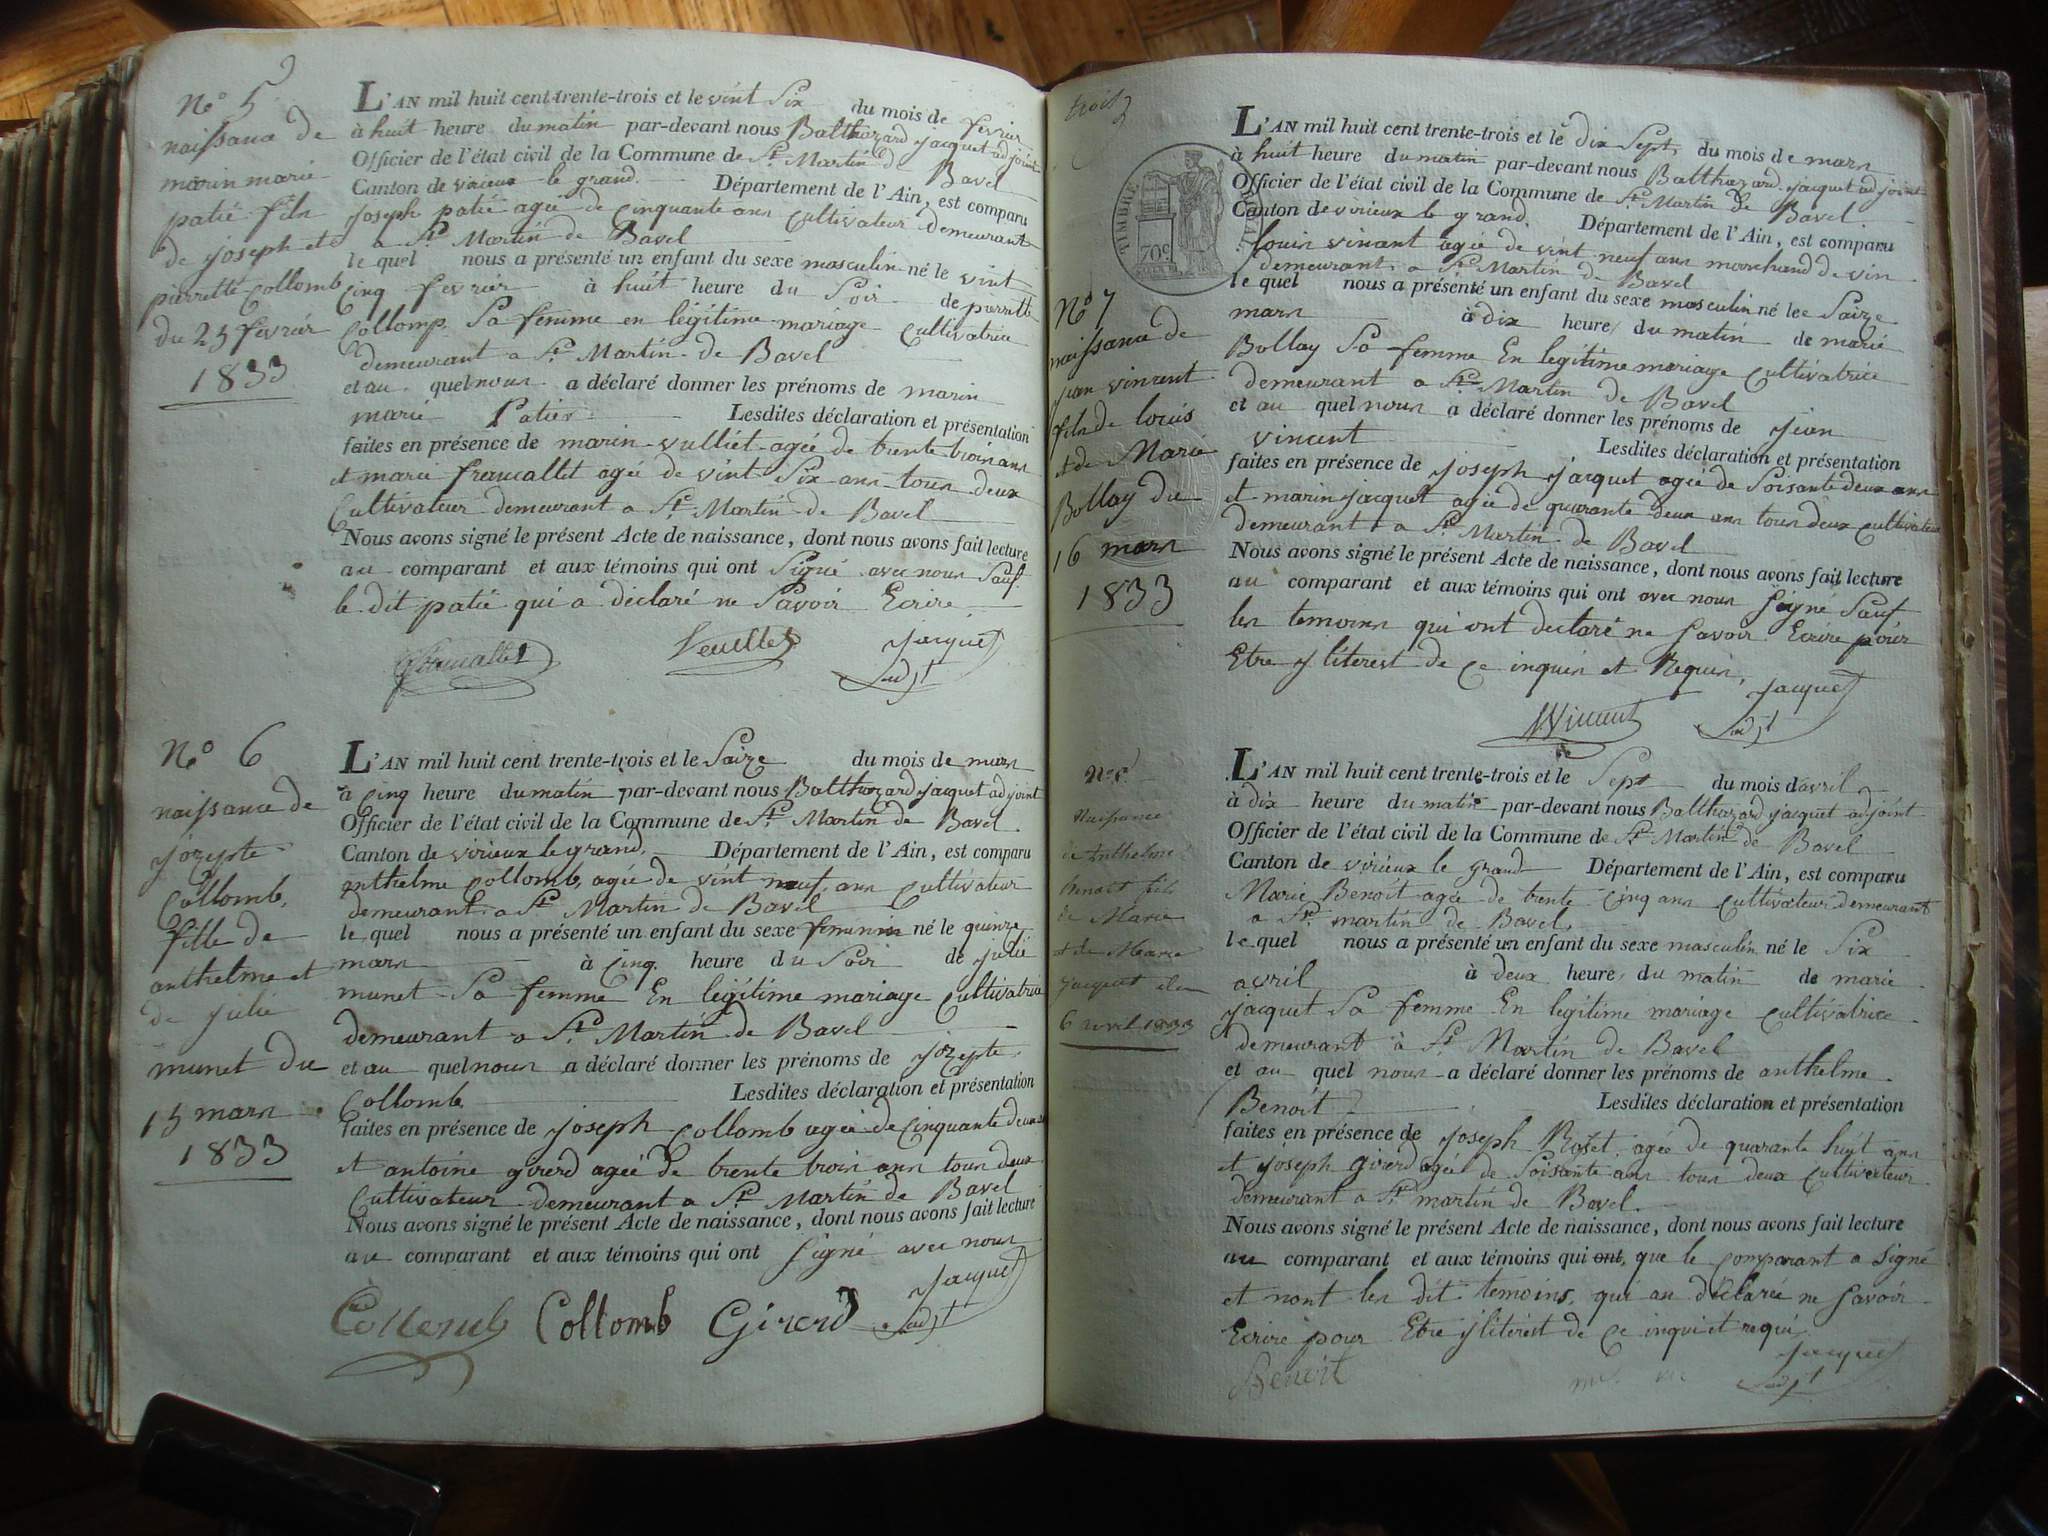 N° 5
naissance de
marin marie
patié fils
de joseph et de
pierrette Collomb
du 25 fevrier
1833
L'AN mil huit cent trente-trois et le vint Six du mois de fevrier
à huit heure du matin par-devant nous Balthazard jacquet adjoint
Officier de l'état civil de la Commune de St Martin de Bavel
Canton de virieux le grand. Département de l'Ain, est comparu
joseph patié agée de Cinquante ans Cultivateur demeurant
a St Martin de Bavel
le quel nous a présenté un enfant du sexe masculin né le vint
Cinq fevrier à huit heure du Soir de pierrette
Collomp Sa femme en légitime mariage Cultivatrice
demeurant a St Martin de Bavel
et au quel nous a déclaré donner les prénoms de marin
marie Patier Lesdites déclaration et présentation
faites en présence de marin vulliet agée de trente trois ans
et marie francallet agée de vint Six ans tous deux
Cultivateur demeurant a St Martin de Bavel
Nous avons signé le présent Acte de naissance, dont nous avons fait lecture
au comparant et aux témoins qui ont Signé avec nous Sauf
le dit patié qui a déclaré ne Savoir Ecrire
jacquet
adjt
N° 6
naissance de
jozepte
Collomb,
fille de
anthelme et
de julie
munet du
15 mars
1833
L'AN mil huit cent trente-trois et le Saize du mois de mars
à Cinq heure du matin par-devant nous Balthazard jacquet adjoint
Officier de l'état civil de la Commune de St Martin de Bavel
Canton de virieux le grand. Département de l'Ain, est comparu
anthelme Collomb, agée de vint neuf ans Cultivateur
demeurant a St Martin de Bavel
le quel nous a présenté un enfant du sexe feminin né le quinze
mars à Cinq heure du Soir de julie
munet Sa femme En legitime mariage Cultivatrice
demeurant a St Martin de Bavel
et au quel nous a déclaré donner les prénoms de jozepte
Collomb Lesdites déclaration et présentation
faites en présence de joseph Collomb agée de Cinquante deux ans
et antoine girerd agée de trente trois ans tous deux
Cultivateur demeurant a St Martin de Bavel
Nous avons signé le présent Acte de naissance, dont nous avons fait lecture
au comparant et aux témoins qui ont Signé avec nous
jacquet
Collomb Collomb Girerd adjt
trois
TIMBRE ROYAL
70c
N° 7
naissance de
jean vincent
fils de louis
et de Marie
Bollay du
16 mars
1833
L'AN mil huit cent trente-trois et le dix Sept du mois de mars
à huit heure du matin par-devant nous Balthazard jacquet adjoint
Officier de l'état civil de la Commune de St Martin de Bavel
Canton de virieux le grand. Département de l'Ain, est comparu
louis vincent agée de vint neuf ans marchand de vin
demeurant a St Martin de Bavel
le quel nous a présenté un enfant du sexe masculin né lee Saize
mars à dix heure du matin de marie
Bollay Sa femme En legitime mariage Cultivatrice
demeurant a St Martin de Bavel
et au quel nous a déclaré donner les prénoms de jean
vincent Lesdites déclaration et présentation
faites en présence de joseph jacquet agée de Soisante deux ans
et marin jacquet agée de quarante deux ans tous deux Cultivateur
demeurant a St Martin de Bavel
Nous avons signé le présent Acte de naissance, dont nous avons fait lecture
au comparant et aux témoins qui ont avec nous Signé Sauf
les temoins qui ont declaré ne Savoir Ecrire pour
Etre y literest de Ce inquis et Requis,
jacquet
Vincent adjt
Naissance
de Anthelme
Benoit fils
de Marie
et de Marie
jacquet du
6 avril 1833
L'AN mil huit cent trente-trois et le Sept du mois d'avril
à dix heure du matin par-devant nous Balthazard jacquet adjoint
Officier de l'état civil de la Commune de St Martin de Bavel
Canton de virieux le grand Département de l'Ain, est comparu
Marie Benoit agée de trente Cinq ans Cultivateur demeurant
a St martin de Bavel
le quel nous a présenté un enfant du sexe masculin né le Six
avril à deux heure du matin de marie
jacquet Sa femme En legitime mariage Cultivatrice
demeurant à St Martin de Bavel
et au quel nous a déclaré donner les prénoms de anthelme
Benoit Lesdites déclaration et présentation
faites en présence de joseph Roset agée de quarante huit ans
et joseph girerd agée de Soisante ans tous deux Cultivateur
demeurant a St martin de Bavel.
Nous avons signé le présent Acte de naissance, dont nous avons fait lecture
au comparant et aux témoins qui ont, que le Comparant a Signé
et nont les dit temoins, qui on déclarée ne Savoir
Ecrire pour Etre y literest de Ce inqui et requi
jacquet
Benoit adjt